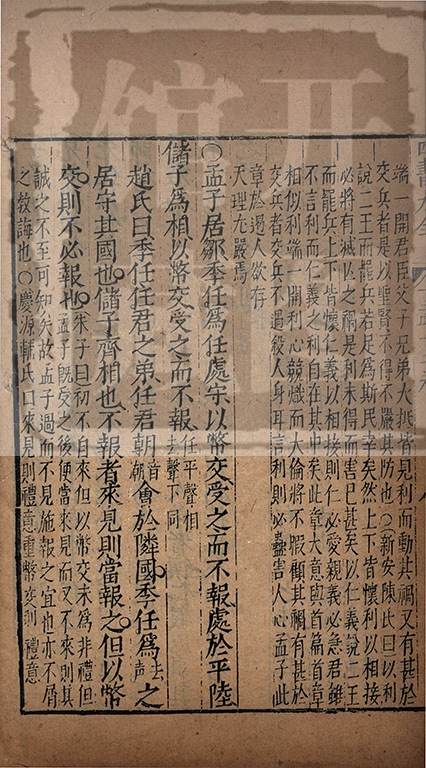 端一開君臣父子兄弟大抵皆見利而動其禍又有甚於
交兵者是以聖賢不得不嚴其防也○新安陳氏曰以利
說二王而罷兵若足為斯民幸矣然上下皆懷利以相接
必將有滅亡之禍是利未得而害已甚矣以仁義說二王
而罷兵上下皆懷仁義以相接則仁必愛親義必急君雖
不言利而仁義之利自在其中矣此章大意與首篇首章
相似利端一開利心競熾而大倫將不暇顧其禍有甚於
交兵者交兵不過殺人身耳言利則必蠱害人心孟子此
章於遏人欲存
天理尤嚴焉
○孟子居鄒季任為任處守以幣交受之而不報處於平陸
儲子為相以幣交受之而不報任平聲相
去聲下同
趙氏曰季任任君之弟任君朝音
潮會於隣國季任為去
聲之
居守其國也儲子齊相也不報者來見則當報之但以幣
交則不必報也朱子曰初不自來但以幣交未為非禮但
孟子既受之後便當來見而又不來則其
誠之不至可知矣故孟子過而不見施報之宜也亦不屑
之敎誨也○慶源輔氏曰來見則禮意重幣交則禮意